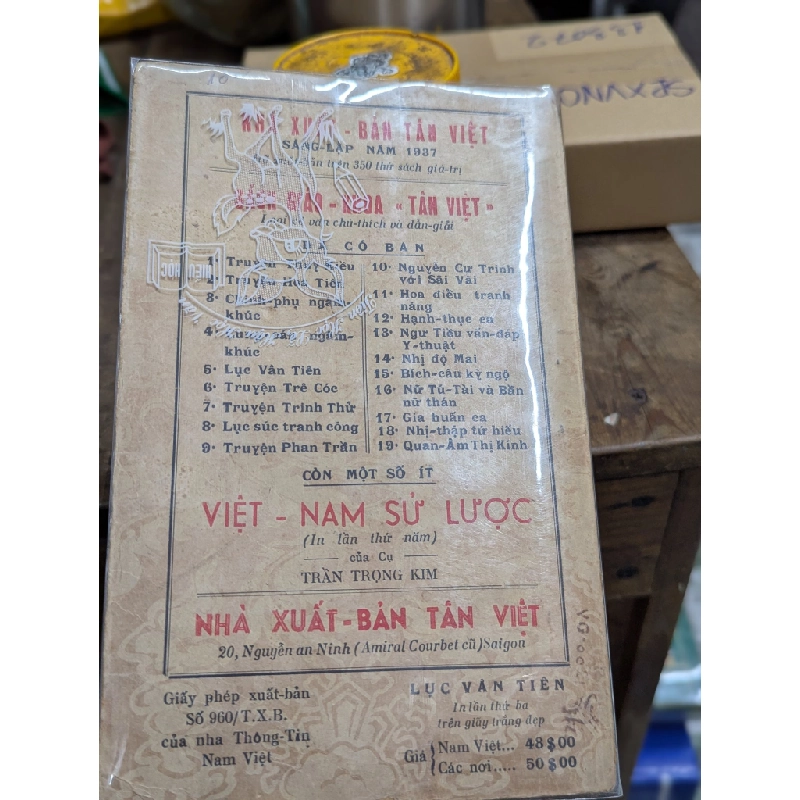 NHÀ XUẤT-BẢN TÂN VIỆT
SÁNG-LẬP NĂM 1937
xuất-bản trên 350 thứ sách giá-trị
SÁCH GIÁO-KHOA «TÂN VIỆT»
Loại cổ văn chú-thích và dẫn-giải
ĐÃ CÓ BÁN
1· Truyện Thúy Kiều
2· Truyện Hoa Tiên
3· Chinh-phụ ngâm-
khúc
4· ngâm-
khúc
5· Lục Vân Tiên
6· Truyện Trê Cóc
7· Truyện Trinh Thử
8· Lục súc tranh công
9· Truyện Phan Trần
10· Nguyễn Cư Trinh
với Sãi Vãi
11· Hoa điểu tranh
năng
12· Hạnh-thục ca
13· Ngư Tiều vấn-đáp
Y-thuật
14· Nhị độ Mai
15· Bích-câu kỳ ngộ
16· Nữ Tú-Tài và Bần
nữ thán
17· Gia huấn ca
18· Nhị-thập tứ hiếu
19· Quan-Âm Thị Kính
CÒN MỘT SỐ ÍT
VIỆT - NAM SỬ LƯỢC
(In lần thứ năm)
của Cụ
TRẦN TRỌNG KIM
NHÀ XUẤT-BẢN TÂN VIỆT
20, Nguyễn an Ninh (Amiral Courbet cũ) Saigon
Giấy phép xuất-bản
Số 960/T.X.B.
của nha Thông-Tin
Nam Việt
LỤC VÂN TIÊN
In lần thứ ba
trên giấy trắng đẹp
Giá Nam Việt... 48$00
Các nơi..... 50$00